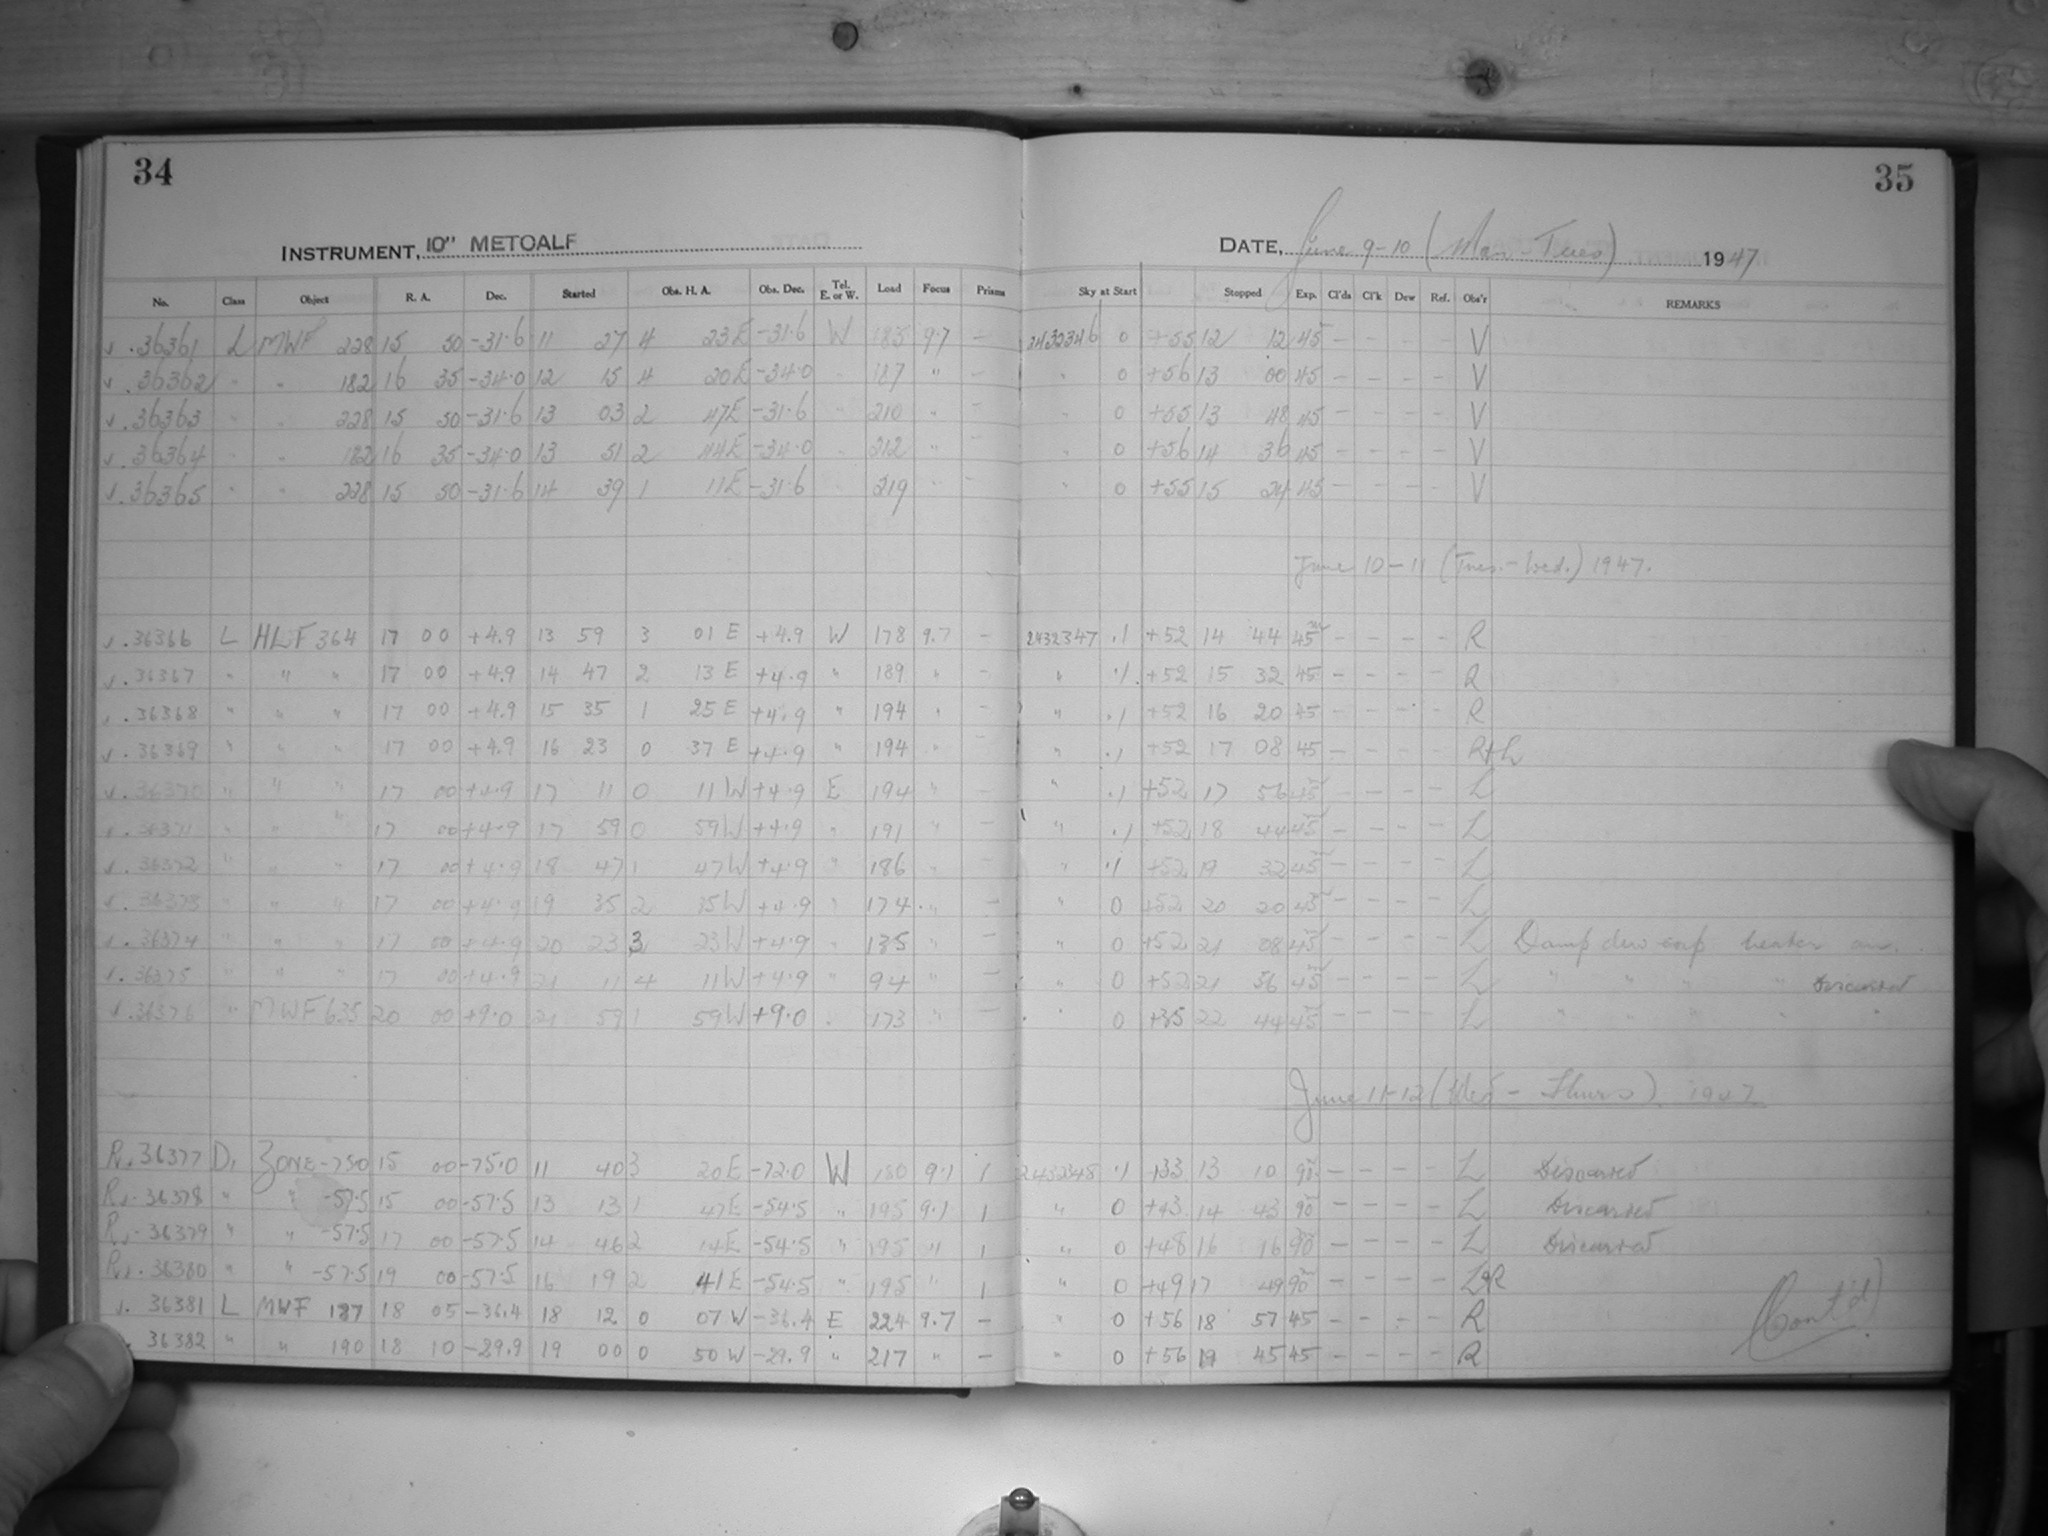 34
35
INSTRUMENT, 10" METCALF
DATE, June 9-10 (Mon-Tues) 1947
No. Class Object R. A. Dec. Started Obs. H. A. Obs. Dec. Tel. E. or W. Load Focus Prisms Sky at Start Stopped Exp. Cl'ds Cl'k Dew Ref. Obs'r REMARKS
v. 36361 L MWF 228 15 50 -31.6 11 27 4 23E -31.6 W 185 9.7 - 2432346 0 +55 12 12 45 - - - - V
v. 36362 " " 182 16 35 -34.0 12 15 4 20E -34.0 " 187 " - " 0 +56 13 00 45 - - - - V
v. 36363 " " 228 15 50 -31.6 13 03 2 47E -31.6 " 210 " - " 0 +55 13 48 45 - - - - V
v. 36364 " " 182 16 35 -34.0 13 51 2 44E -34.0 " 212 " - " 0 +56 14 36 45 - - - - V
v. 36365 " " 228 15 50 -31.6 14 39 1 11E -31.6 219 " - " 0 +55 15 24 45 - - - - V
June 10-11 (Tues.-Wed.) 1947.
v. 36366 L HLF 364 17 00 +4.9 13 59 3 01 E +4.9 W 178 9.7 - 2432347 .1 +52 14 44 45 - - - - R
v. 36367 " " " 17 00 +4.9 14 47 2 13 E +4.9 " 189 " - " .1 +52 15 32 45 - - - - R
v. 36368 " " " 17 00 +4.9 15 35 1 25 E +4.9 " 194 " - " .1 +52 16 20 45 - - - - R
v. 36369 " " " 17 00 +4.9 16 23 0 37 E +4.9 " 194 " - " .1 +52 17 08 45 - - - - R+L
v. 36370 " " " 17 00 +4.9 17 11 0 11 W +4.9 E 194 " - " .1 +52 17 56 45 - - - - L
v. 36371 " " " 17 00 +4.9 17 59 0 59W +4.9 " 191 " - " .1 +52 18 44 45 - - - - L
v. 36372 " " " 17 00 +4.9 18 47 1 47W +4.9 " 186 " - " .1 +52 19 32 45 - - - - L
v. 36373 " " " 17 00 +4.9 19 35 2 35W +4.9 " 174 " - " 0 +52 20 20 45 - - - - L
v. 36374 " " " 17 00 +4.9 20 23 3 23W +4.9 " 135 " - " 0 +52 21 08 45 - - - - L Damp dew cap heater on.
v. 36375 " " " 17 00 +4.9 21 11 4 11W +4.9 " 94 " - " 0 +52 21 56 45 - - - - L " " " " Discarded
v. 36376 " MWF 635 20 00 +9.0 21 59 1 59W +9.0 " 173 " - " 0 +35 22 44 45 - - - - L " " " " "
June 11-12 (Wed - Thurs) 1947
Rv. 36377 D, ZONE -75.0 15 00 -75.0 11 40 3 20E -72.0 W 180 9.1 1 2432348 .1 +33 13 10 90 - - - - L Discarded
Rv. 36378 " " -57.5 15 00 -57.5 13 13 1 47E -54.5 " 195 9.1 1 " 0 +43 14 43 90 - - - - L Discarded
Rv. 36379 " " -57.5 17 00 -57.5 14 46 2 14E -54.5 " 195 " 1 " 0 +48 16 16 90 - - - - L Discarded
Rv. 36380 " " -57.5 19 00 -57.5 16 19 2 41E -54.5 " 195 " 1 " 0 +49 17 49 90 - - - - L&R
v. 36381 L MWF 187 18 05 -36.4 18 12 0 07 W -36.4 E 224 9.7 - " 0 +56 18 57 45 - - - - R
v. 36382 " " 190 18 10 -29.9 19 00 0 50 W -29.9 " 217 " - " 0 +56 19 45 45 - - - - R
(Cont'd)